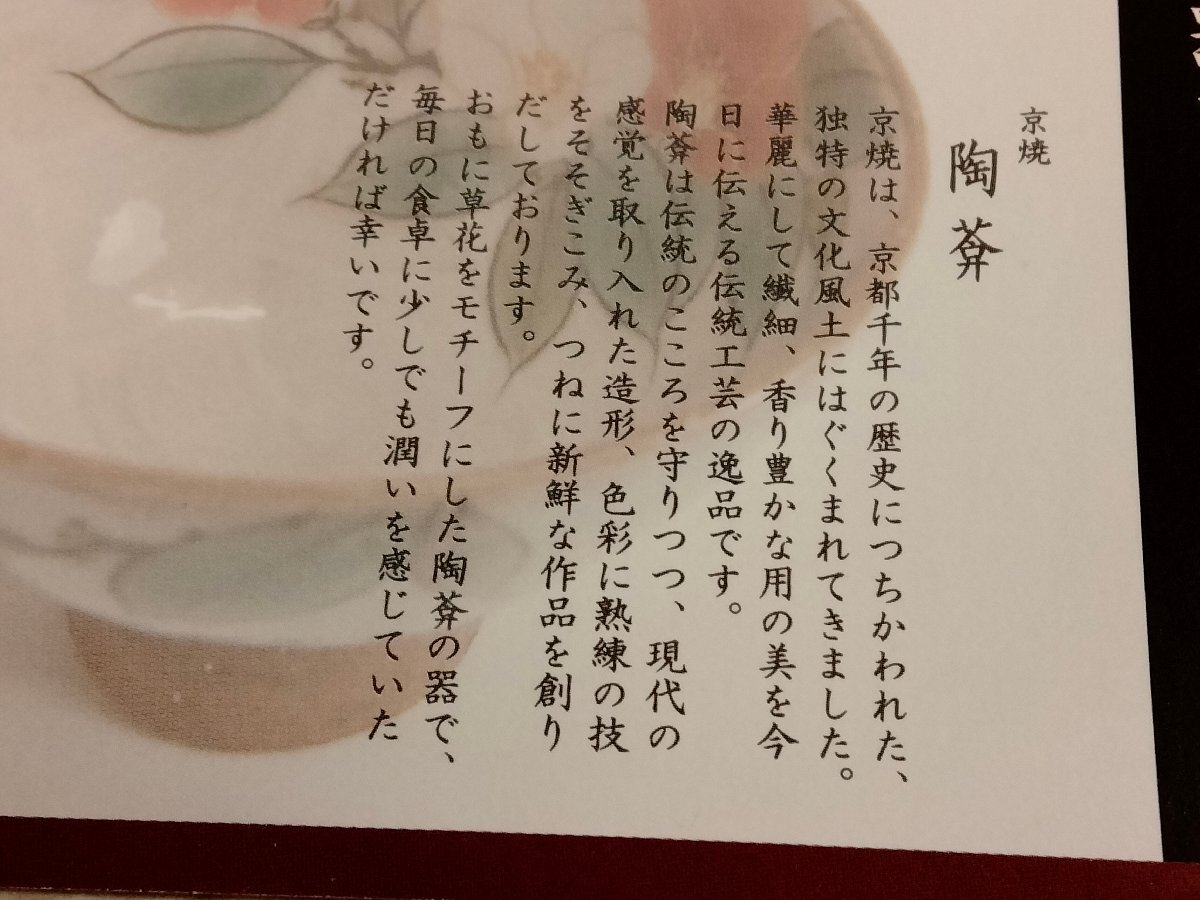 京焼
陶葊
京焼は、京都千年の歴史につちかわれた、
独特の文化風土にはぐくまれてきました。
華麗にして繊細、香り豊かな用の美を今
日に伝える伝統工芸の逸品です。
陶葊は伝統のこころを守りつつ、現代の
感覚を取り入れた造形、色彩に熟練の技
をそそぎこみ、つねに新鮮な作品を創り
だしております。
おもに草花をモチーフにした陶葊の器で、
毎日の食卓に少しでも潤いを感じていた
だければ幸いです。